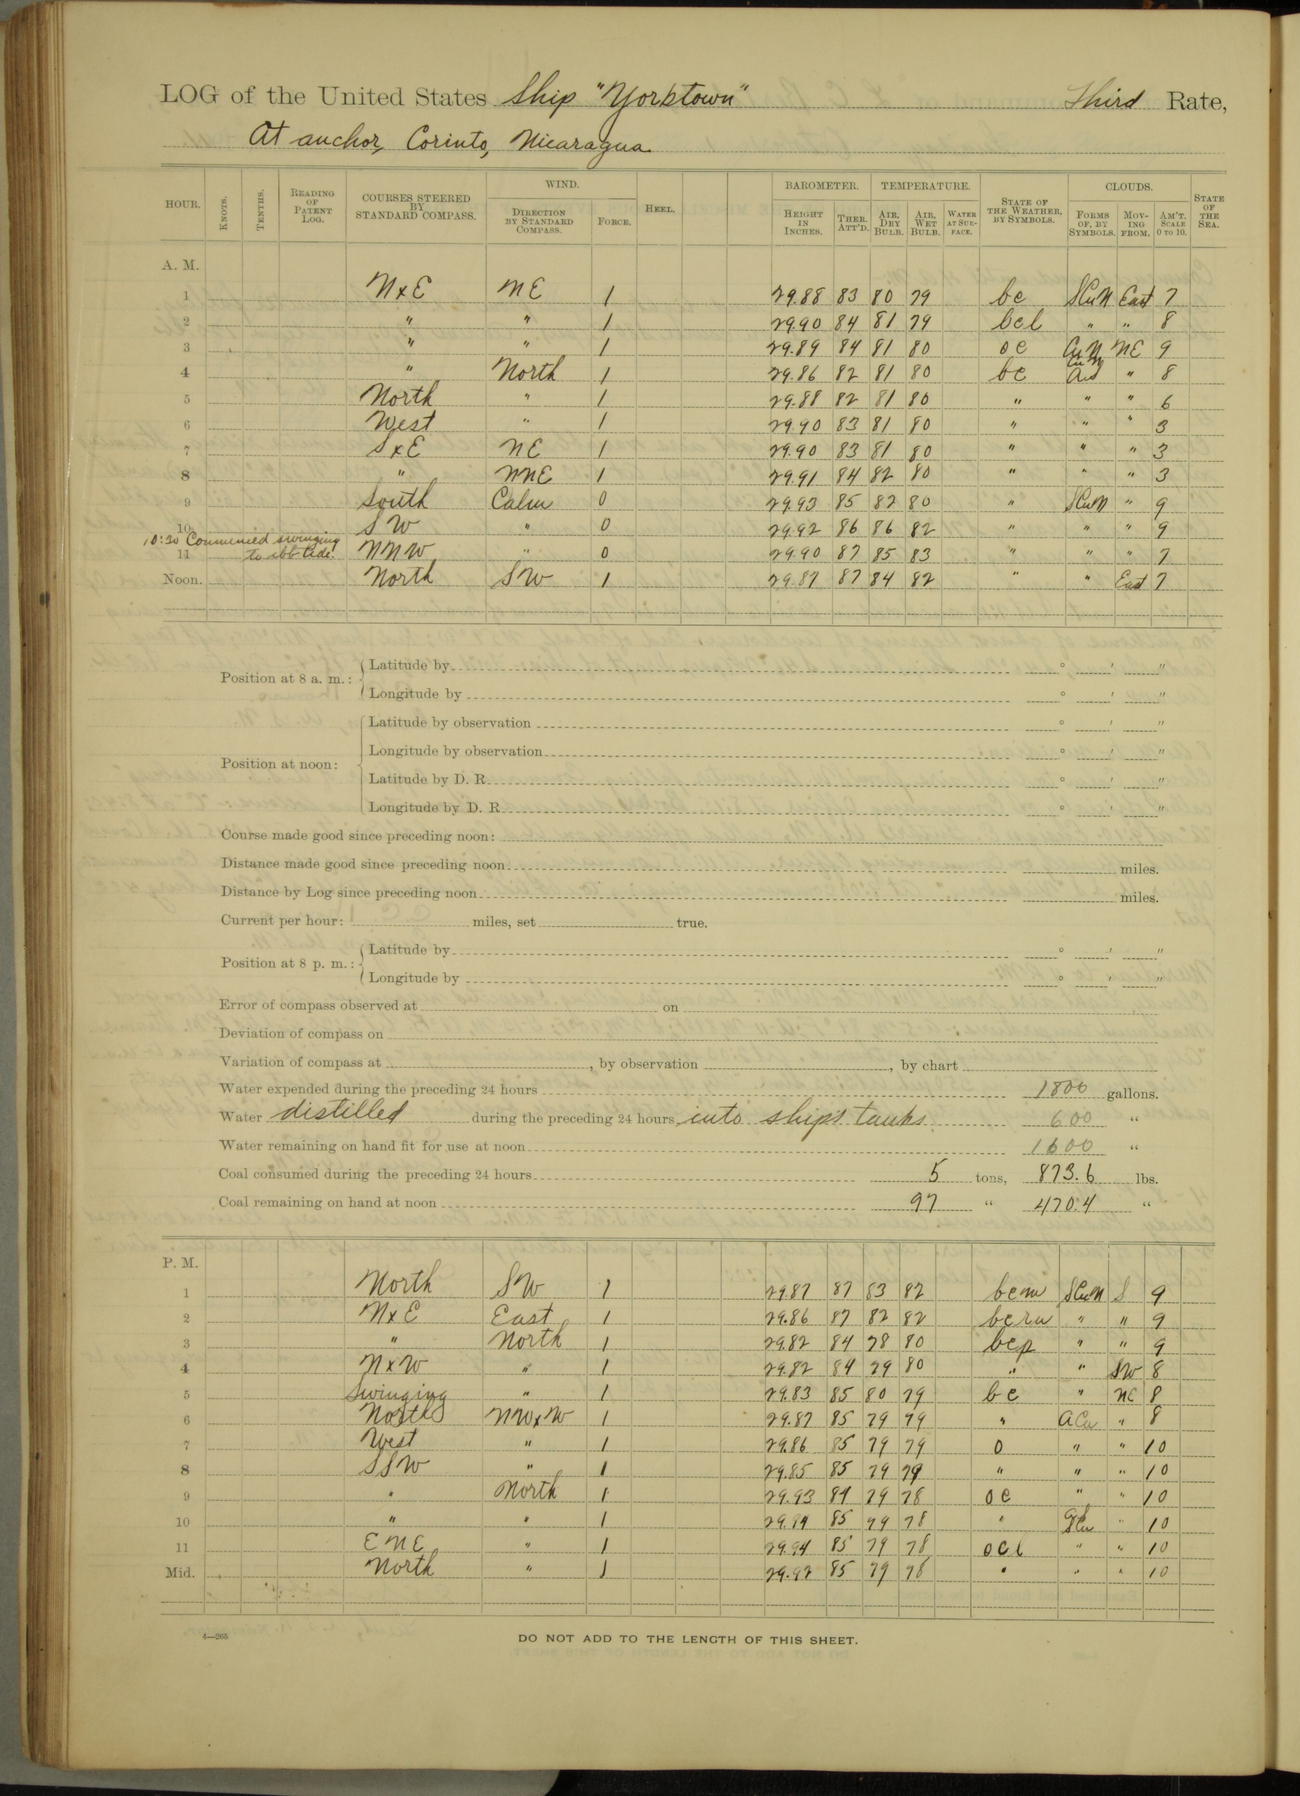 LOG of the United States Ship "Yorktown" Third Rate,
At anchor, Corinto, Nicaragua
HOUR. KNOTS. TENTHS. READING OF PATENT LOG. COURSES STEERED BY STANDARD COMPASS. WIND. DIRECTION BY STANDARD COMPASS. FORCE. HEEL. BAROMETER. HEIGHT IN INCHES. THER. ATT'D. TEMPERATURE. AIR, DRY BULB. AIR, WET BULB. WATER AT SURFACE. STATE OF THE WEATHER, BY SYMBOLS. CLOUDS. FORMS OF, BY SYMBOLS. MOVING FROM. AM'T. SCALE 0 TO 10. STATE OF THE SEA.
A. M.
1 NxE NE 1 29.88 83 80 79 bc SCuN East 7
2 " " 1 29.90 84 81 79 bcl " " 8
3 " " 1 29.89 84 81 80 oc CuN NE 9
4 " North 1 29.86 82 81 80 bc CuN " 8
5 North " 1 29.88 82 81 80 " " " 6
6 West " 1 29.90 83 81 80 " " " 3
7 SxE NE 1 29.90 83 81 80 " " " 3
8 " NNE 1 29.91 84 82 80 " " " 3
9 South Calm 0 29.93 85 82 80 " SCuN " 9
10 SW " 0 29.92 86 86 82 " " " 9
10:30 Commenced swinging
11 to ebb tide. NNW " 0 29.90 87 85 83 " " " 7
Noon. North SW 1 29.87 87 84 82 " " East 7
Position at 8 a. m.: Latitude by ° ' "
Longitude by ° ' "
Latitude by observation ° ' "
Longitude by observation ° ' "
Position at noon:
Latitude by D. R. ° ' "
Longitude by D. R. ° ' "
Course made good since preceding noon:
Distance made good since preceding noon miles.
Distance by Log since preceding noon miles.
Current per hour: miles, set true.
Position at 8 p. m.: Latitude by ° ' "
Longitude by ° ' "
Error of compass observed at on
Deviation of compass on
Variation of compass at , by observation , by chart
Water expended during the preceding 24 hours 1800 gallons.
Water distilled during the preceding 24 hours into ship's tanks 600 "
Water remaining on hand fit for use at noon 1600 "
Coal consumed during the preceding 24 hours 5 tons, 873.6 lbs.
Coal remaining on hand at noon 97 " 470.4 "
P. M.
1 North SW 1 29.87 87 83 82 SCuN S 9
2 NxE East 1 29.86 87 82 82 " " 9
3 " North 1 29.82 84 78 80 bcp " " 9
4 NxW " 1 29.82 84 79 80 " " SW 8
5 Swinging " 1 29.83 85 80 79 bc " NE 8
6 North NWxW 1 29.87 85 79 79 " ACu " 8
7 West " 1 29.86 85 79 79 o " " 10
8 SSW " 1 29.85 85 79 79 " " " 10
9 " North 1 29.93 84 79 78 oc " " 10
10 " " 1 29.94 85 79 78 " SCu " 10
11 ENE " 1 29.94 85 79 78 ocl " " 10
Mid. North " 1 29.92 85 79 78 " " " 10
4—265
DO NOT ADD TO THE LENGTH OF THIS SHEET.